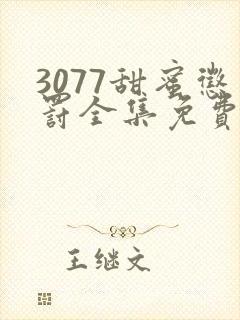 3077甜蜜惩
罚全集免費
王继文